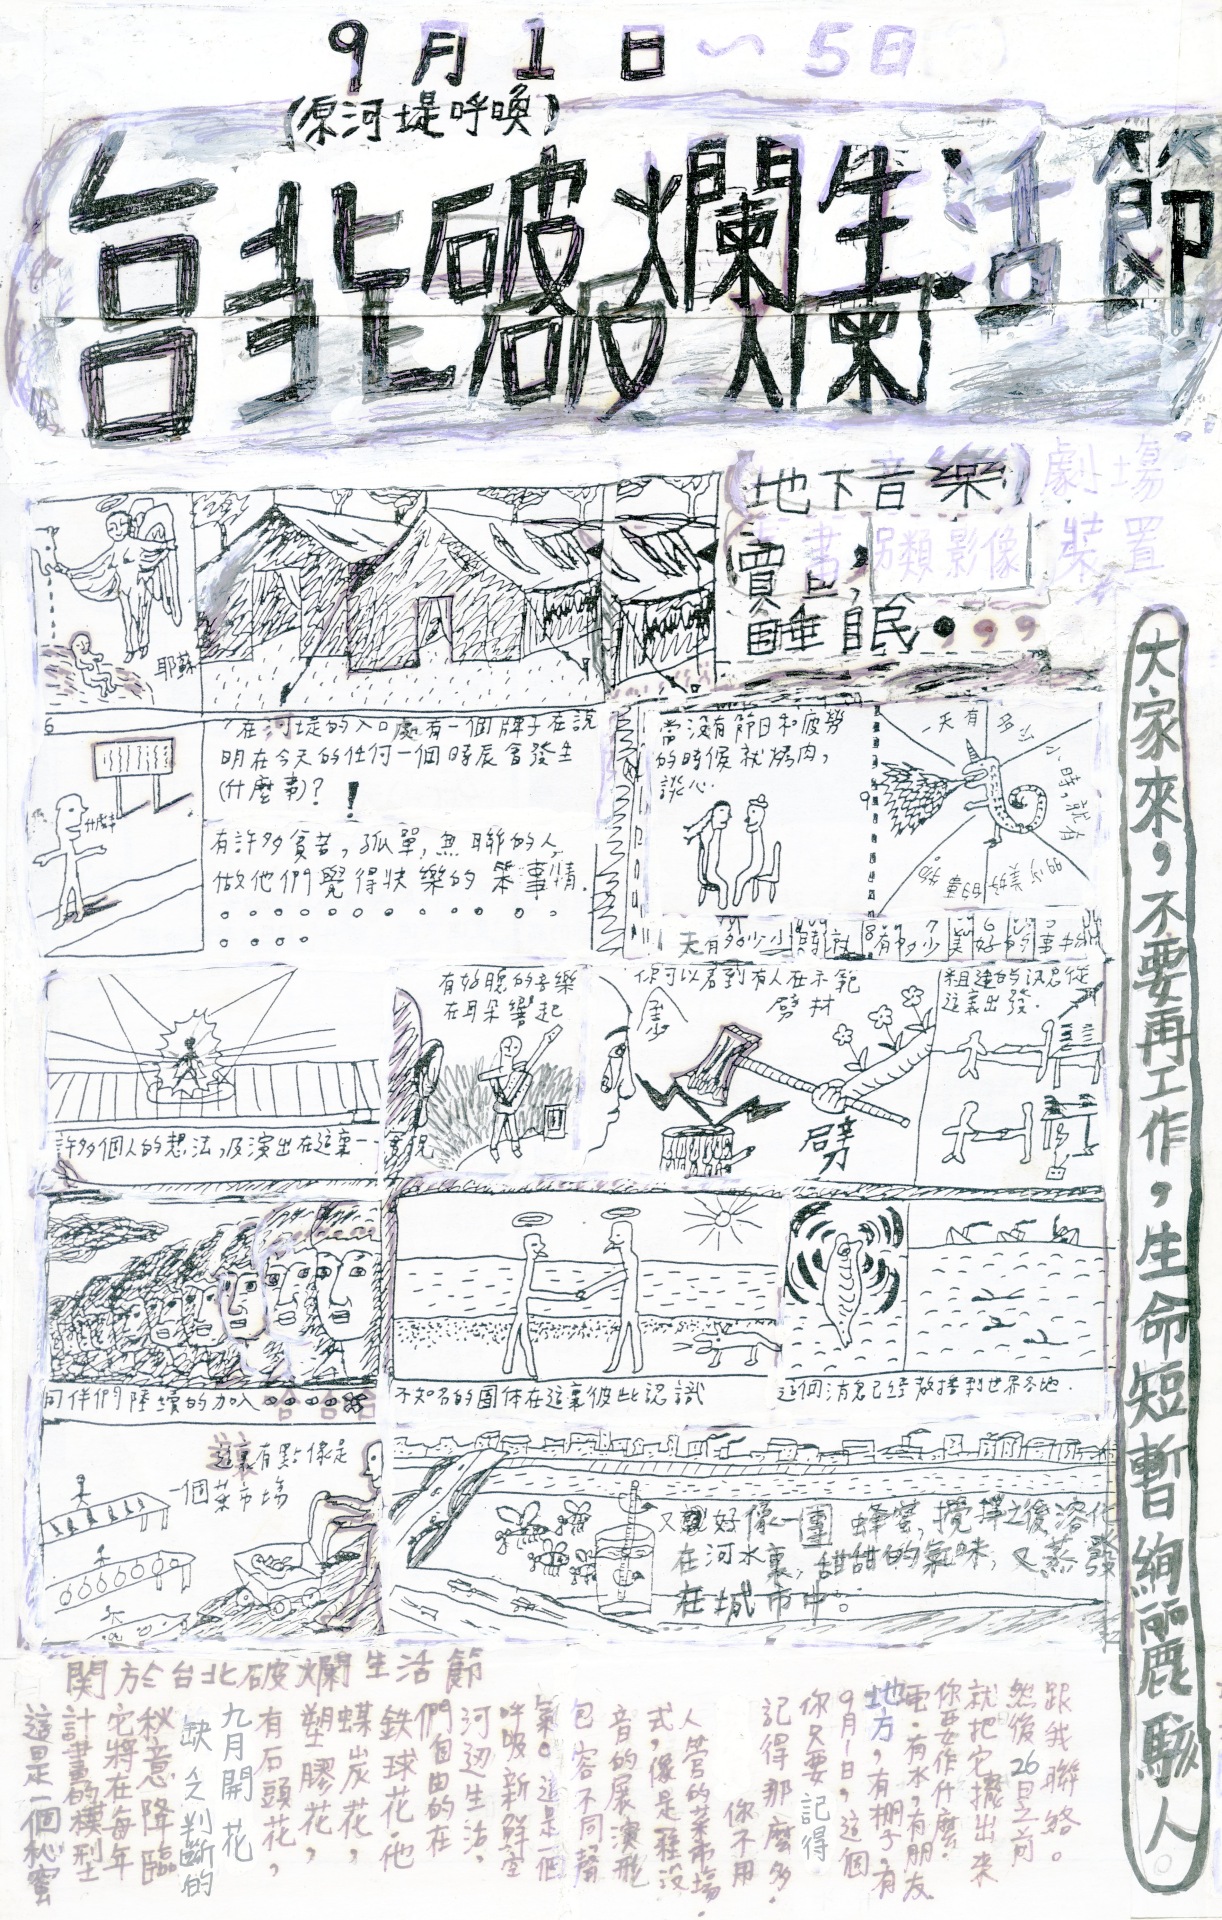 9月1日～5日
(原河堤呼喚)
台北破爛生活節
(地下音樂)劇場
另類影像 裝置
睡眠•
大家來，不要再工作，生命短暫絢麗駭人。
耶穌
6
在河堤的入口處有一個牌子在說
明在今天的任何一個時辰會發生
(什麼事)？！
有許多貧苦，孤單，無聊的人，
做他們覺得快樂的笨事情．
當沒有節日和疲勞
的時候就烤肉，
談心．
一天有多少小時，就有
多少美好的事物
許多個人的想法，及演出在這裏一一實現
有好聽的音樂
在耳朵響起
你可以看到有人在示範
劈材
劈
粗造的訊息從
這裏出發．
同伴們陸續的加入
不知名的團体在這裏彼此認識
這個消息已經散播到世界各地．
這裏有點像是
一個菜市場
又好像一團蜂蜜，攪拌之後溶化
在河水裏，甜甜的氣味，又蒸發
在城市中。
關於台北破爛生活節
跟我聯絡。
然後26日之前
就把它搬出來
你要作什麼．
電．有水，有朋友
地方，有棚子，有
9月1日，這個
你只要 記得
記得那麼多．
你不用
人營的菜市場．
式，像是種沒
音的展演形
包容不同聲
氣。這是一個
呼吸新鮮空
河辺生活，
們自由的在
鉄球花．他
蝶炭花，
塑膠花，
有石頭花，
九月開花
缺乏判斷的
秘意降臨
它將在每年
計畫的模型
這是一個秘蜜